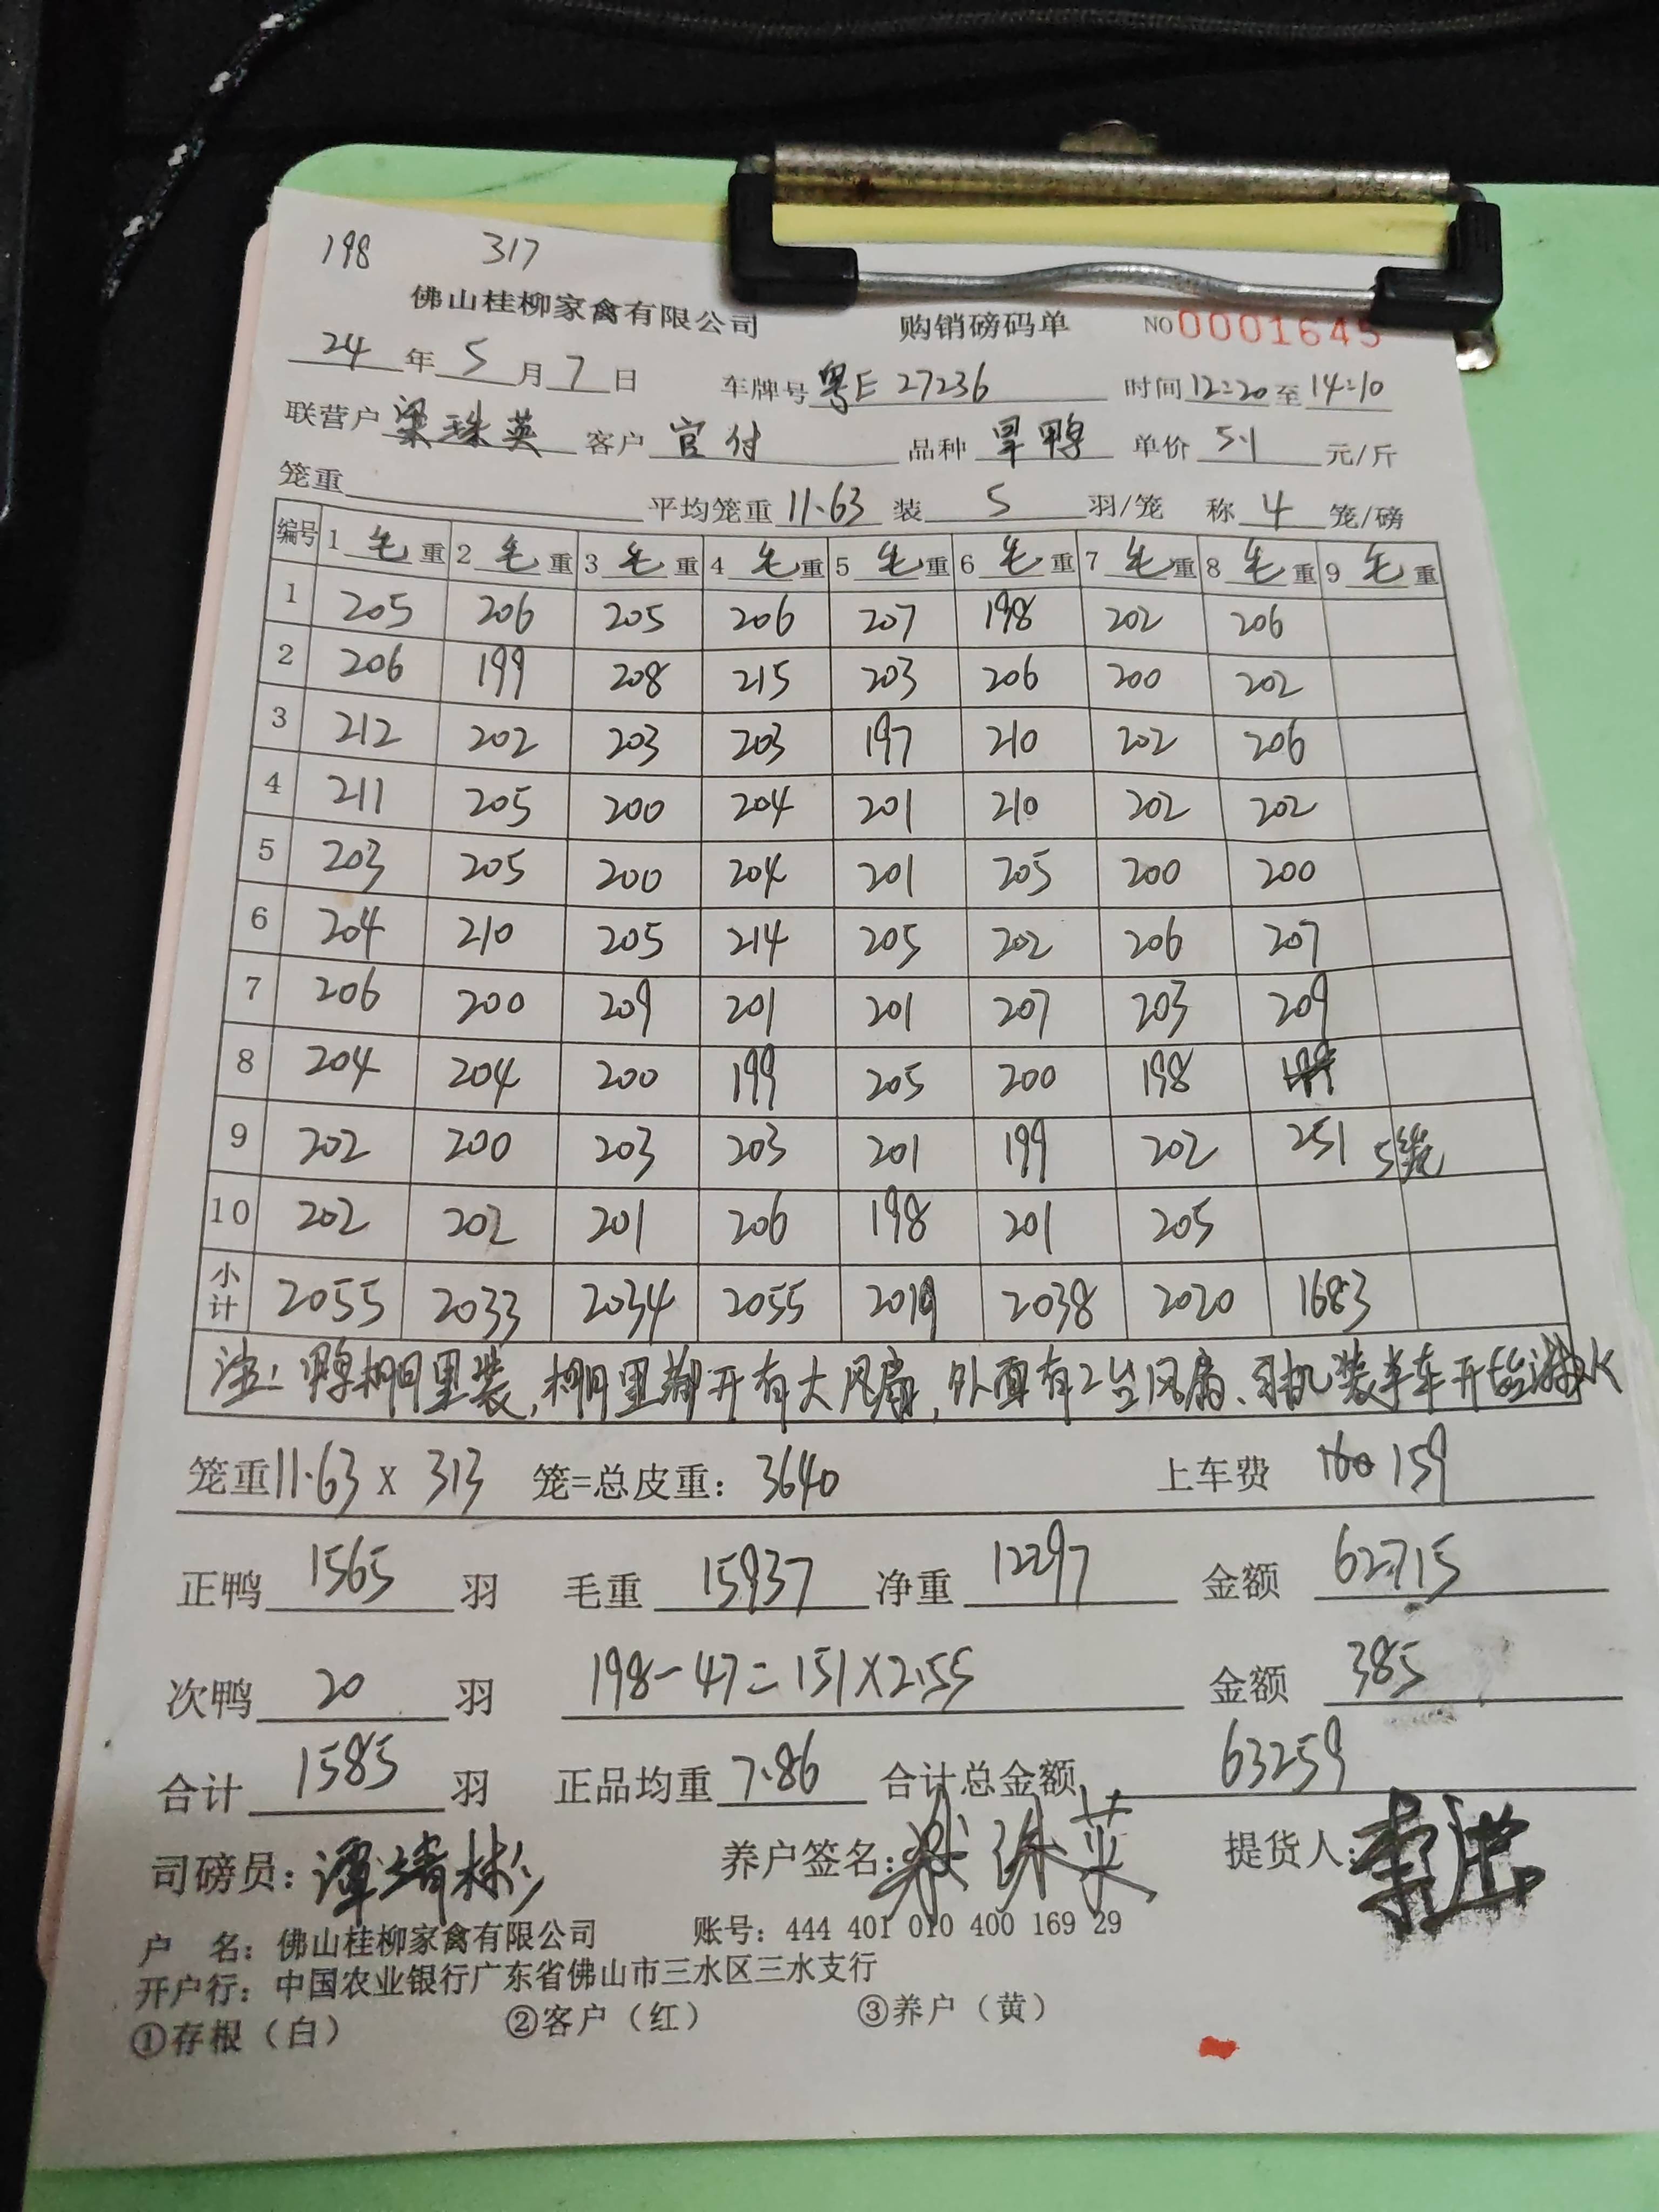 198 317
佛山桂柳家禽有限公司 购销磅码单 NO 0001645
24 年 5 月 7 日 车牌号 粤E 27236 时间 12:20 至 14:10
联营户 梁珠英 客户 官付 品种 旱鸭 单价 5.1 元/斤
笼重 平均笼重 11.63 装 5 羽/笼 称 4 笼/磅
编号 1 毛 重 2 毛 重 3 毛 重 4 毛 重 5 毛 重 6 毛 重 7 毛 重 8 毛 重 9 毛 重
1 205 206 205 206 207 198 202 206
2 206 199 208 215 203 206 200 202
3 212 202 203 203 197 210 202 206
4 211 205 200 204 201 210 202 202
5 203 205 200 204 201 205 200 200
6 204 210 205 214 205 202 206 207
7 206 200 209 201 201 207 203 209
8 204 204 200 199 205 200 198
9 202 200 203 203 201 199 202 251 5笼
10 202 202 201 206 198 201 205
小计 2055 2033 2034 2055 2019 2038 2020 1683
注：鸭棚里装，棚里都开有大风扇，外面有2台风扇、司机装半车开始淋水
笼重 11.63 X 313 笼=总皮重： 3640 上车费 159
正鸭 1565 羽 毛重 15937 净重 12297 金额 62715
次鸭 20 羽 198-47=151X2.55 金额 385
合计 1585 羽 正品均重 7.86 合计总金额 63259
司磅员： 谭靖彬 养户签名： 梁珠英 提货人：
户 名：佛山桂柳家禽有限公司 账号：444 401 010 400 169 29
开户行：中国农业银行广东省佛山市三水区三水支行
①存根（白） ②客户（红） ③养户（黄）